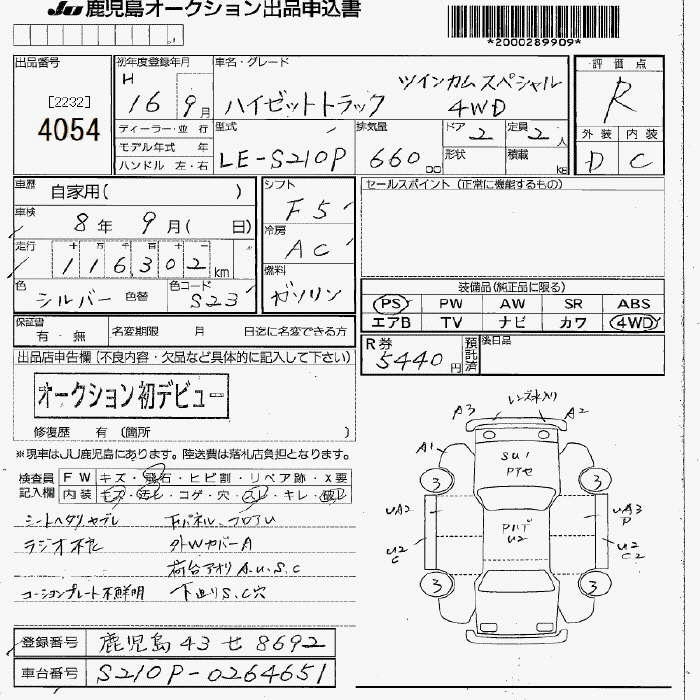 JU 鹿児島オークション出品申込書
*2000289909*
出品番号
[2232]
4054
初年度登録年月
H 16 9月
車名・グレード
ツインカム スペシャル
ハイゼットトラック 4WD
評価点
R
外装 内装
D C
ディーラー・並 行
モデル年式 年
ハンドル 左・右
型式
LE-S210P
排気量
660 cc
ドア 2
定員 2 人
形状
積載 kg
車歴 自家用( )
車検 8年 9月( 日)
走行 十 万 千 百 十
116302 km
色 シルバー 色替
色コード S23
シフト F5
冷房 AC
燃料 ガソリン
セールスポイント (正常に機能するもの)
装備品(純正品に限る)
PS PW AW SR ABS
エアB TV ナビ カワ 4WD
保証書 有・無
名変期限 月 日迄に名変できる方
R券 5440円
預託済
後日品
出品店申告欄(不良内容・欠品など具体的に記入して下さい)
オークション初デビュー
修復歴 有 (箇所 )
※現車はJU鹿児島にあります。陸送費は落札店負担となります。
検査員記入欄
FW キズ・飛石・ヒビ割・リペア跡・X要
内装 キズ・汚レ・コゲ・穴・スレ・キレ・破レ
シートヘタリ ヤブレ
下パネル、フロアU
ラジオ不ヒ
外WカバーA
荷台アオリ A.U.S.C
コーションプレート不鮮明
下廻りS.C穴
登録番号 鹿児島 43 せ 8692
車台番号 S210P-0264651
レンズ水入り
A3 A2
A1
SU1
Pアセ
3 3
UA2
UA3
P
Pハゲ
U2
U2
C
U2
C2
3 3